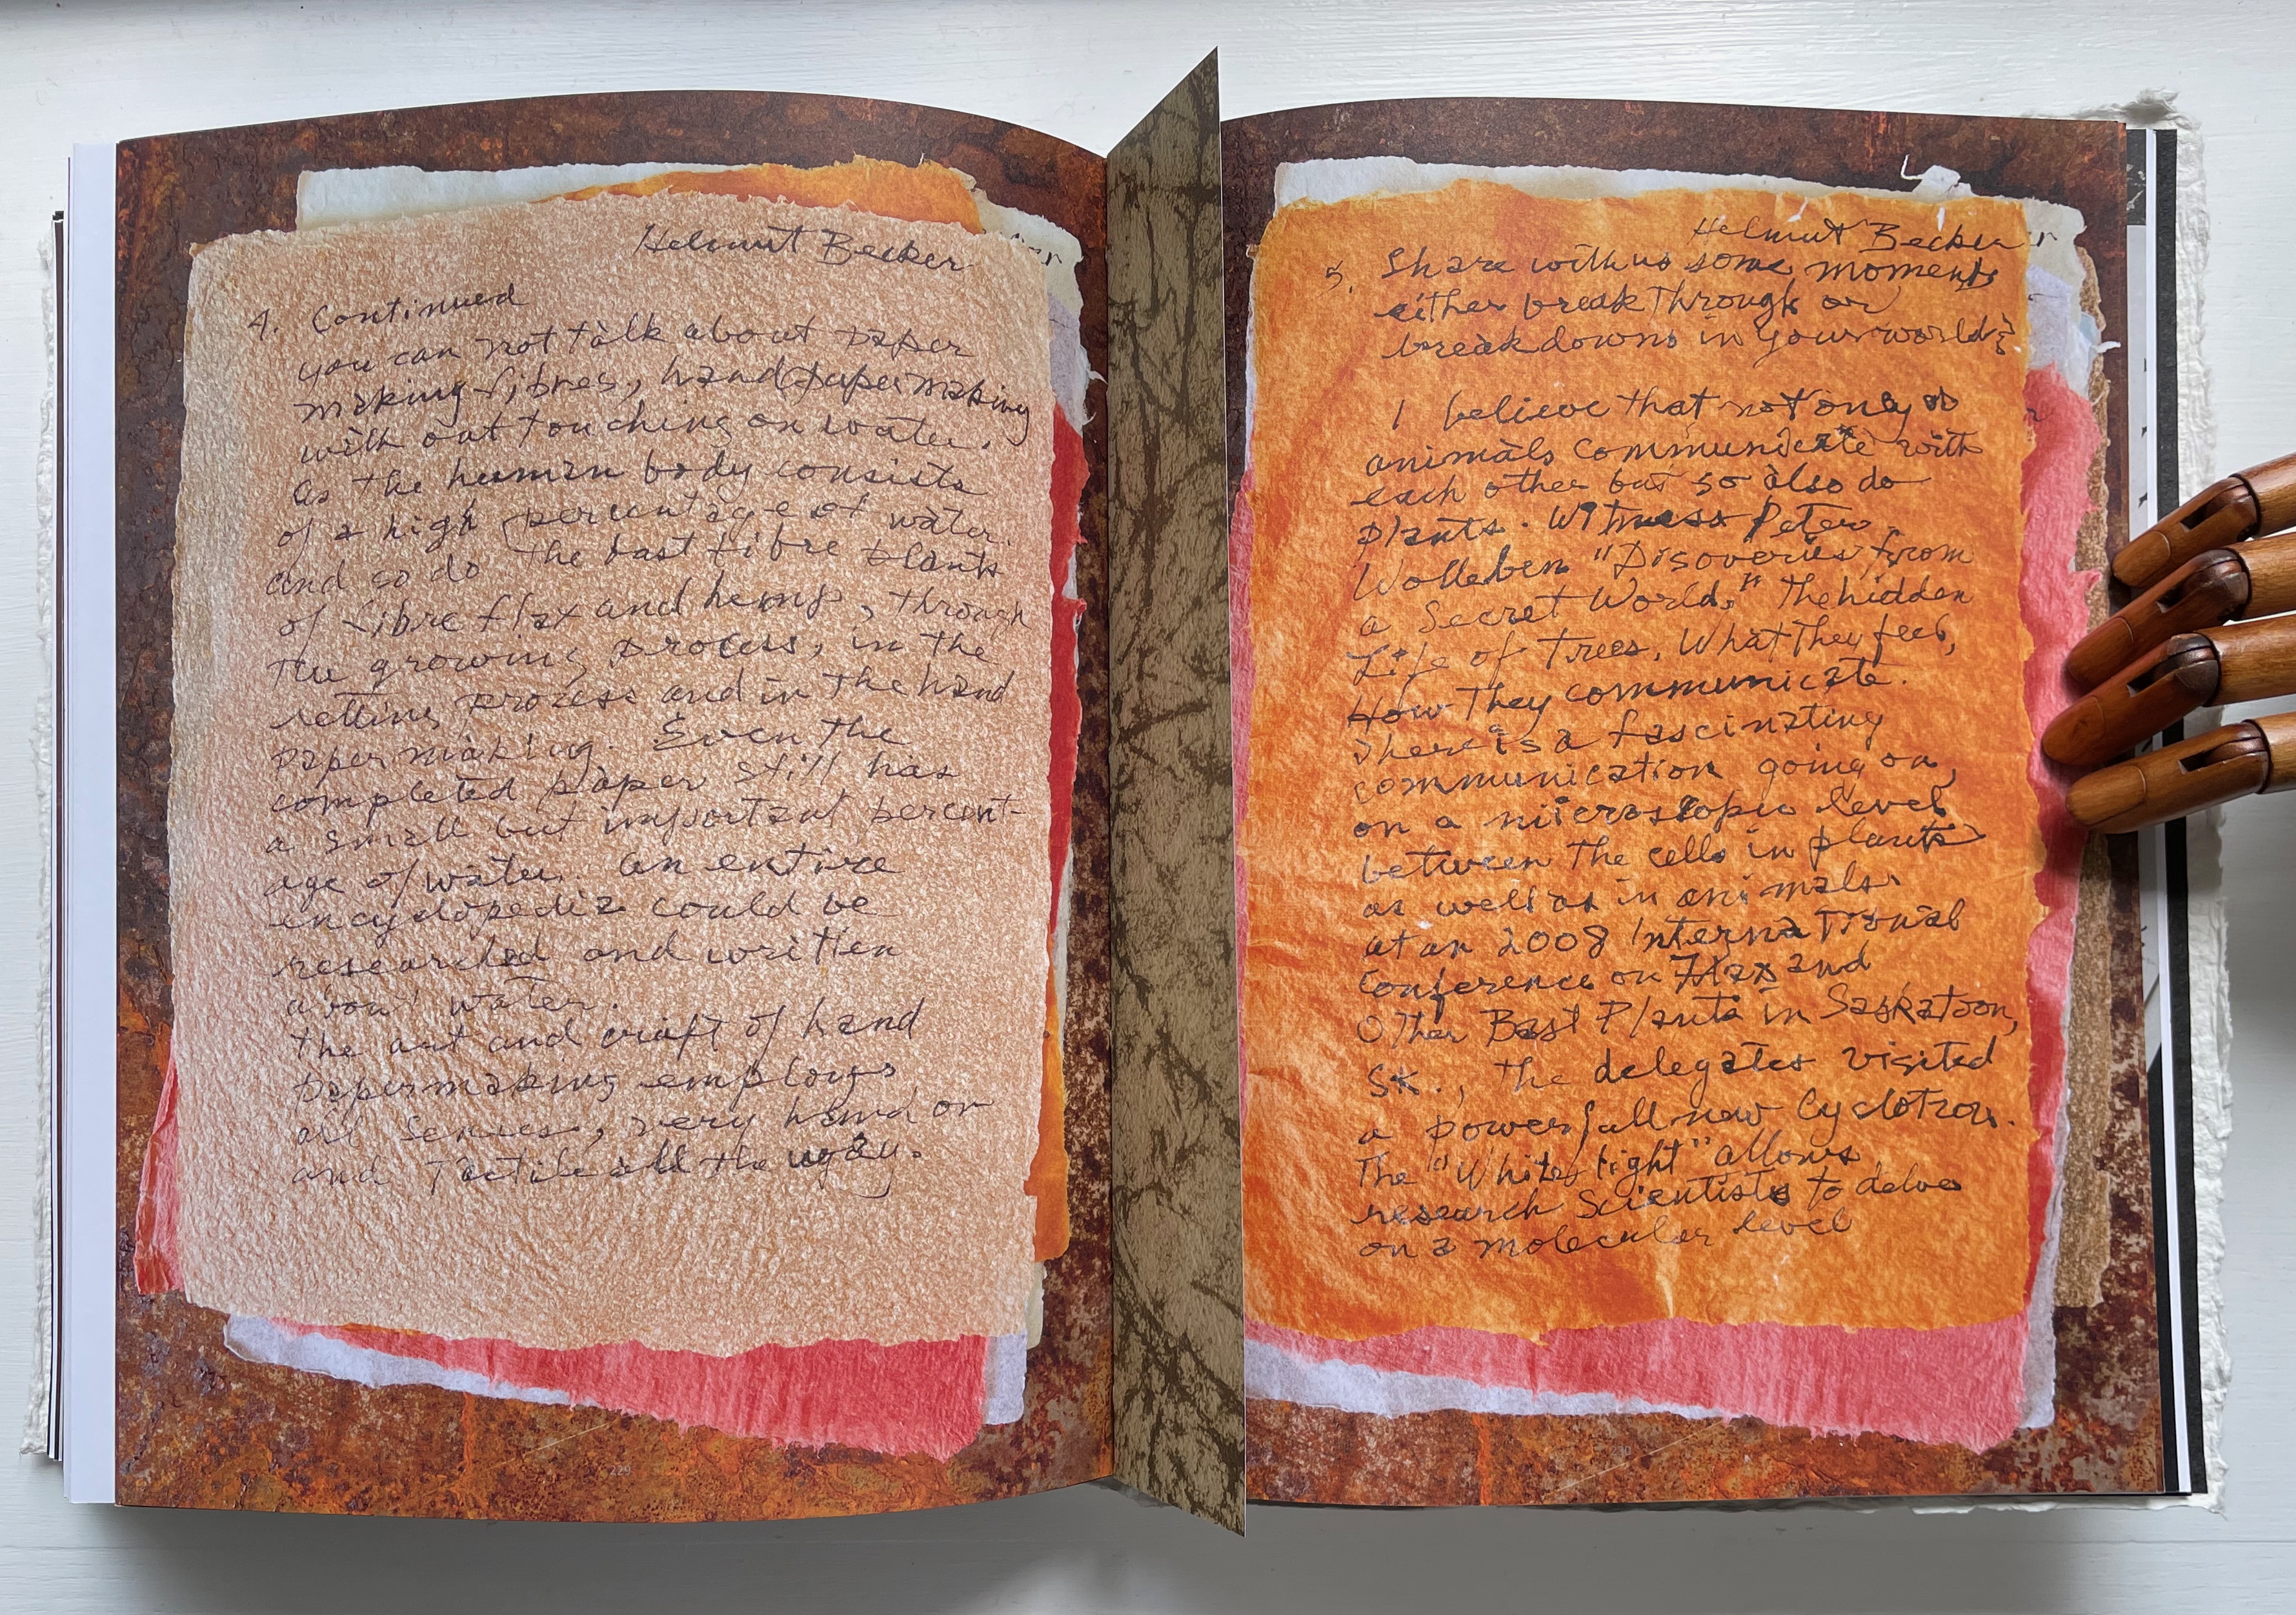 Helmut Becker
4. Continued
you can not talk about paper
making fibres, hand papermaking
with out touching on water.
As the human body consists
of a high percentage of water.
and so do the bast fibre plants
of fibre flax and hemp, through
the growing process, in the
retting process and in the hand
papermaking. Even the
completed paper still has
a small but important percent-
age of water. An entire
encyclopedia could be
researched and written
about water.
The art and craft of hand
papermaking employs
all senses, very hand on
and Tactile all the way.
229
Helmut Becker
5. Share with us some moments
either break through or
break downs in your world?
I believe that not only do
animals communicate with
each other but so also do
plants. Witness Peter
Wolleben "Disoveries from
a Secret World," The hidden
Life of Trees, What They feel,
How They communicate.
There is a fascinating
communication going on,
on a microscopic level
between the cells in plants
as well as in animals.
at an 2008 International
Conference on Flax and
Other Bast Plants in Saskatoon,
SK., the delegates visited
a powerfull new Cyclotron.
The "White light" allows
research Scientists to delve
on a molecular level